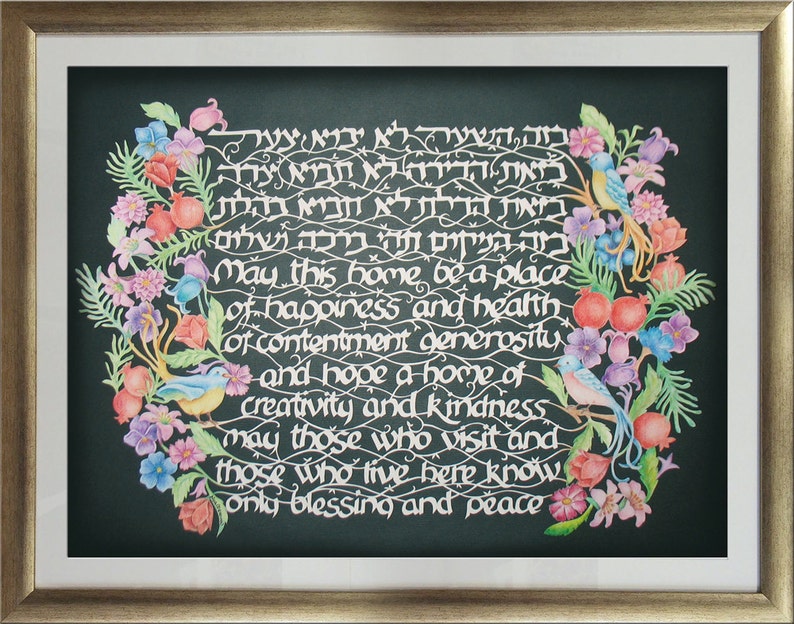 בזה השער לא יבוא צער
בזאת הדירה לא תבוא צרה
בזאת הדלת לא תבוא בהלה
בזה המקום תהי ברכה ושלום
May this home be a place
of happiness and health
of contentment generosity
and hope a home of
creativity and kindness
may those who visit and
those who live here know
only blessing and peace